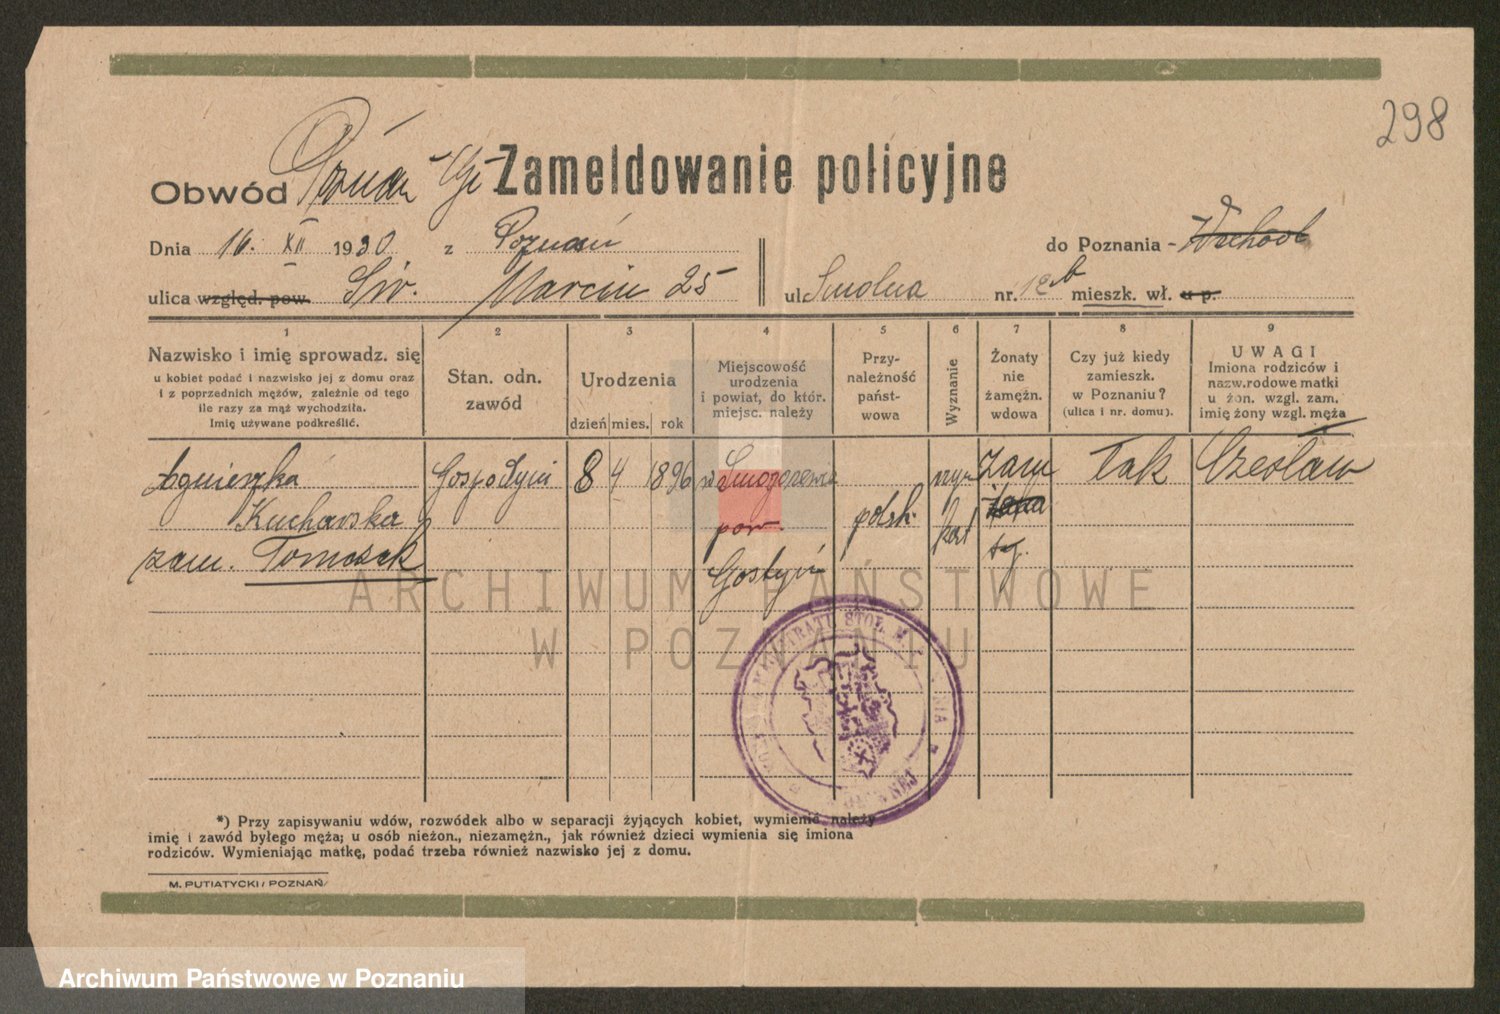 298
Obwód Poznań Zameldowanie policyjne
Dnia 16. XII 1930 z Poznań do Poznania - Wschód
ulica względ. pow. Św. Marcin 25 ul. Smolna nr. 12b mieszk. wł. u p.
1 2 3 4 5 6 7 8 9
Nazwisko i imię sprowadz. się
u kobiet podać i nazwisko jej z domu oraz
i z poprzednich mężów, zależnie od tego
ile razy za mąż wychodziła.
Imię używane podkreślić.
Stan. odn.
zawód
Urodzenia
dzień mies. rok
Miejscowość
urodzenia
i powiat, do któr.
miejsc. należy
Przy-
należność
państ-
wowa
Wyznanie
Żonaty
nie
zamężn.
wdowa
Czy już kiedy
zamieszk.
w Poznaniu?
(ulica i nr. domu).
UWAGI
Imiona rodziców i
nazw.rodowe matki
u żon. wzgl. zam.
imię żony wzgl. męża
Agnieszka Gospodyni 8 4 1896 w Smogorzewie rzym zam tak Czesław
Kucharska pow. polsk. kat
zam. Tomczak Gostyń
*) Przy zapisywaniu wdów, rozwódek albo w separacji żyjących kobiet, wymienić należy
imię i zawód byłego męża; u osób nieżon., niezamężn., jak również dzieci wymienia się imiona
rodziców. Wymieniając matkę, podać trzeba również nazwisko jej z domu.
M. PUTIATYCKI / POZNAŃ
ARCHIWUM PAŃSTWOWE
W POZNANIU
Archiwum Państwowe w Poznaniu